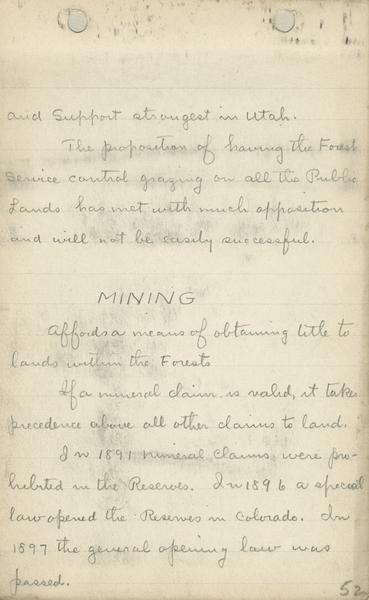 and Support strongest in Utah.
The proposition of having the Forest
Service control grazing on all the Public
Lands has met with much opposition
and will not be easily successful.
MINING
Affords a means of obtaining title to
lands within the Forests
If a mineral claim is valid, it takes
precedence above all other claims to land.
In 1891 mineral claims were pro-
hibited in the Reserves. In 1896 a special
law opened the Reserves in Colorado. In
1897 the general opening law was
passed.
52